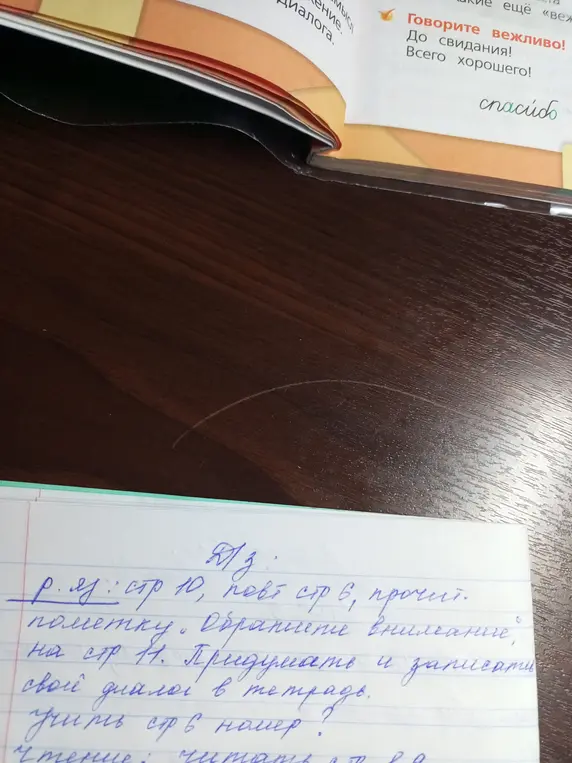 мысл
ение.
диалога.
акие ещё «веж
Говорите вежливо!
До свидания!
Всего хорошего!
спасибо
Д/з.
р. яз: стр 10, повт стр 6, прочит.
пометку „Обратите внимание"
на стр 11. Придумать и записать
свой диалог в тетрадь.
Учить стр 6 номер ?
Чтение: читать стр 8,9